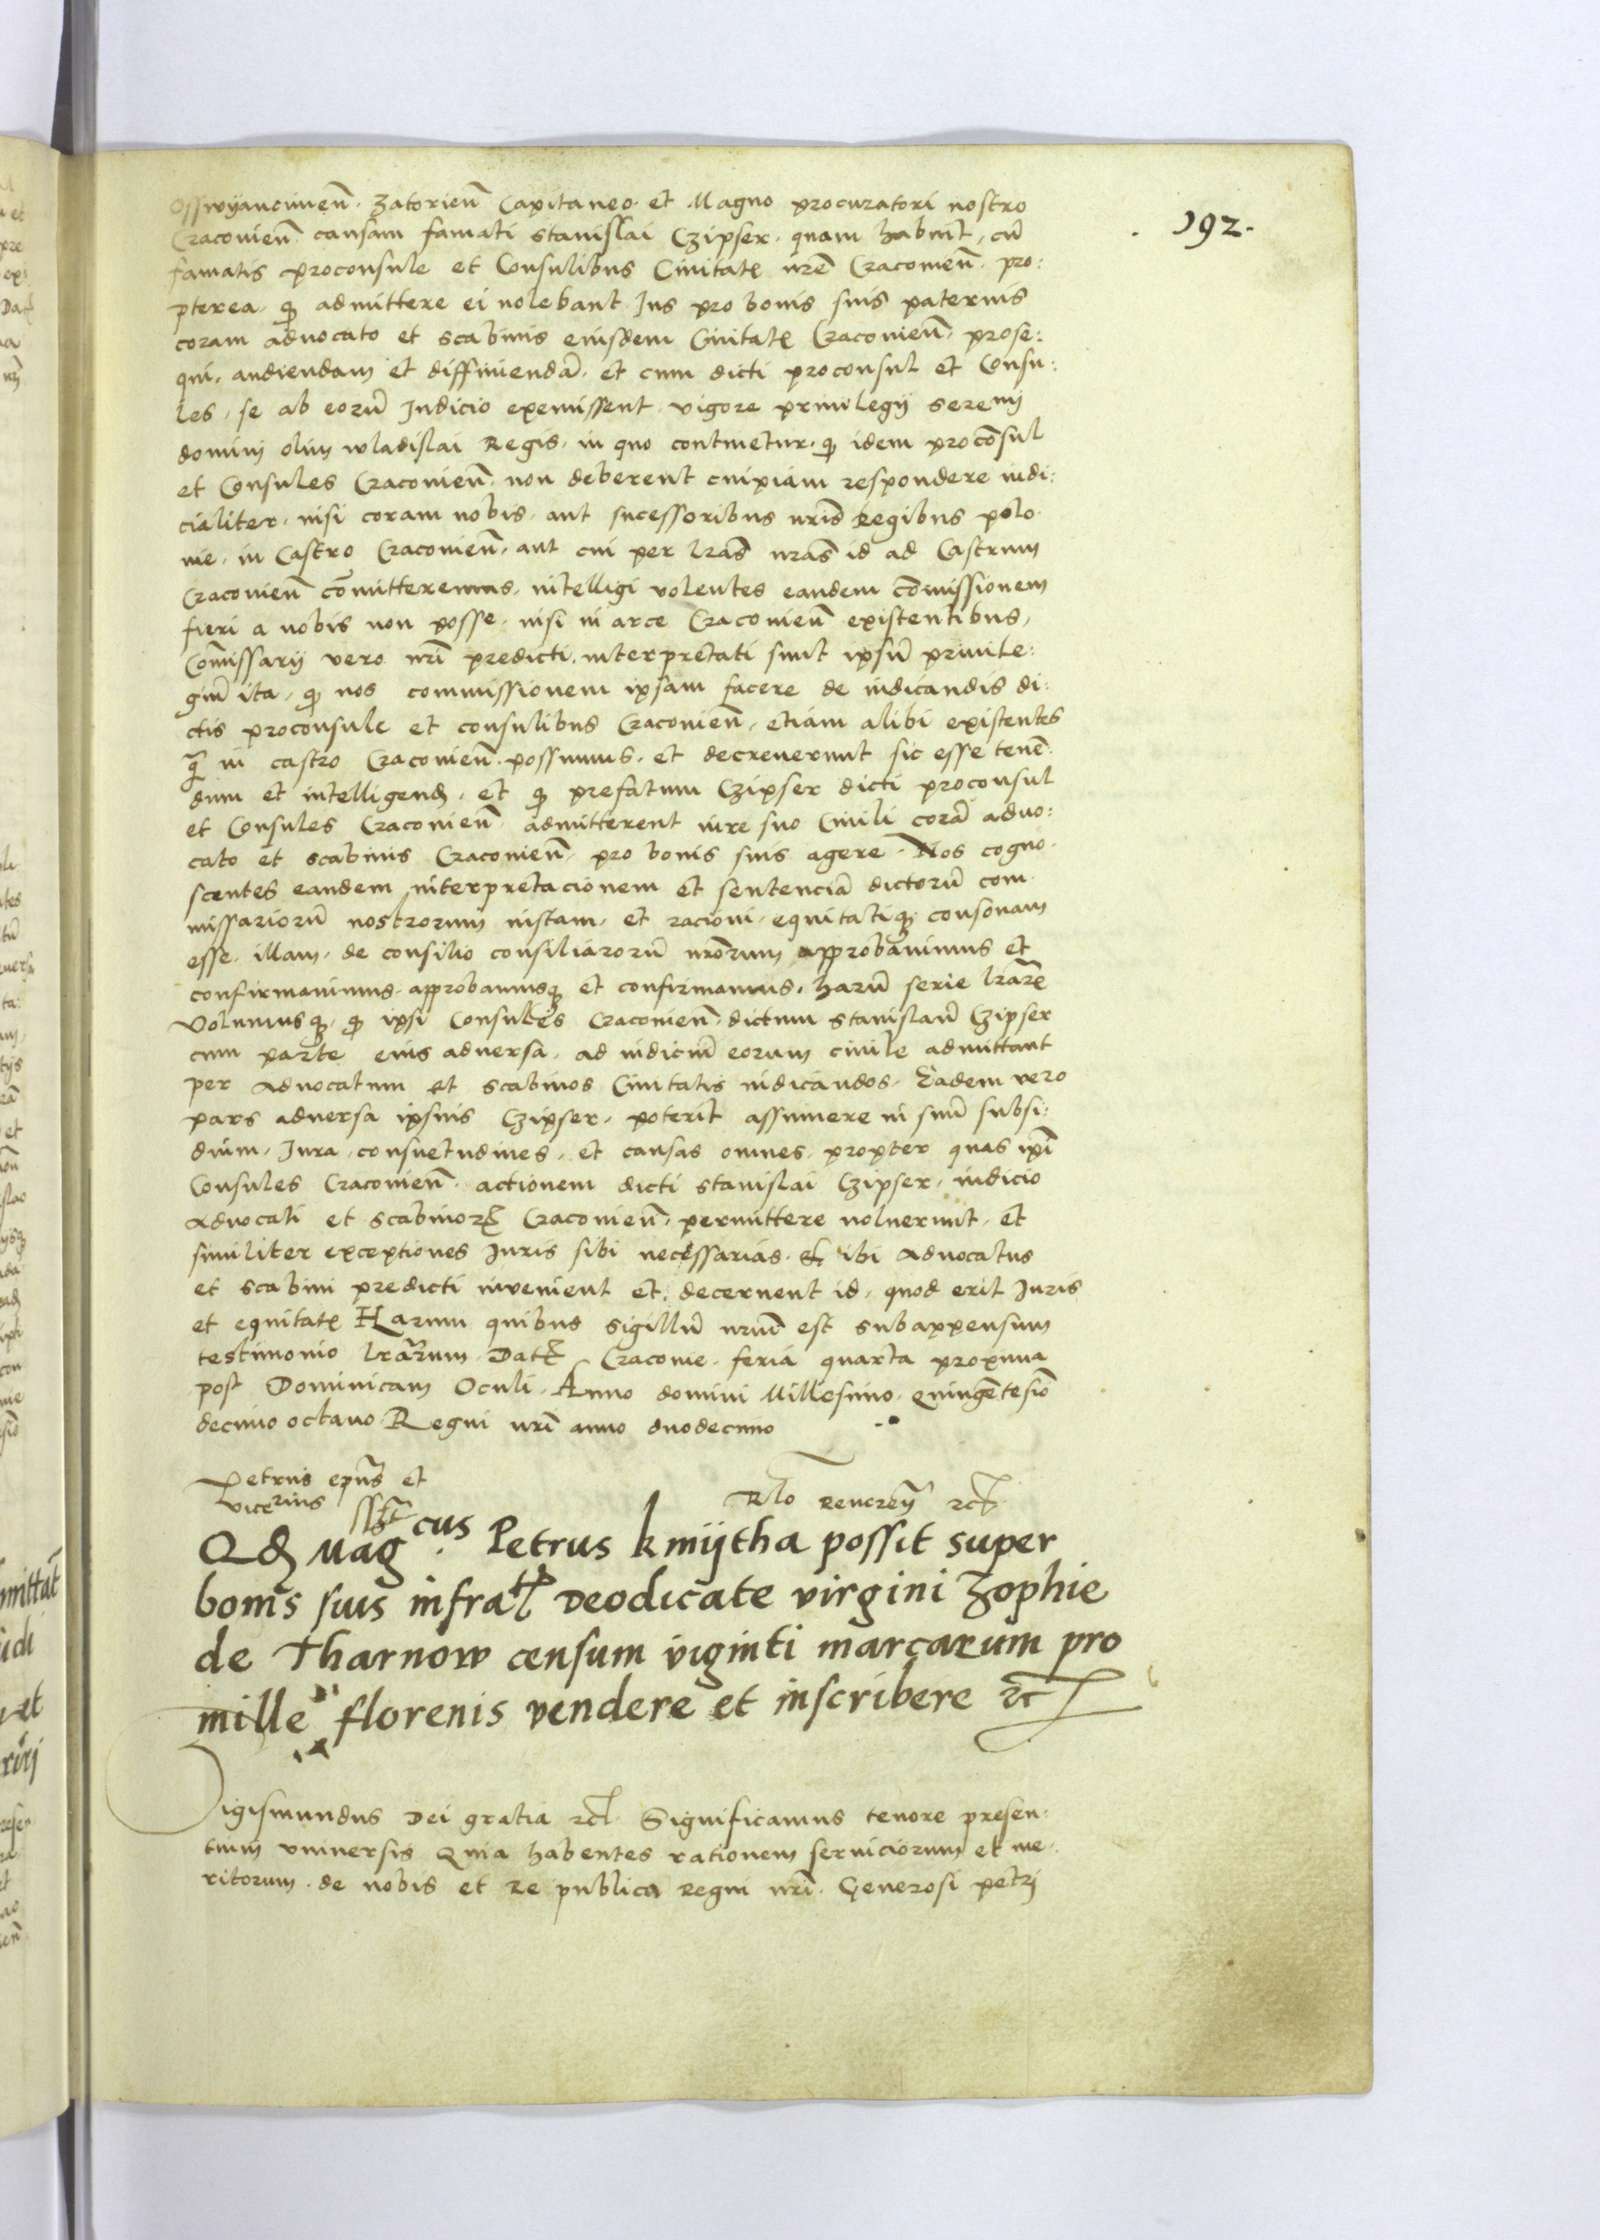 192.
Osswyancimen̄. Zatorien̄ Capitaneo et Magno procuratori nostro
Cracovien̄ causam famati Stanislai Czipser. quam habuit, cū
famatis proconsule et Consulibus Civitatꝭ nr̄e Cracovien̄ pro:
pterea. ꝙ admittere ei nolebant Ius pro bonis suis paternis
coram advocato et scabinis eiusdem Civitatꝭ Cracovien̄. prose:
qui. audiendam et diffiniendā. et cum dicti proconsul et Consu:
les. se ab eorū Iudicio exemissent. vigore privilegij serenj
domini olim wladislai Regis. in quo continetur. ꝙ idem procōsul
et Consules Cracovien̄. non deberent cuipiam respondere iudi:
cialiter. nisi coram nobis. aut sucessoribus nr̄is Regibus polo
nie. in Castro Cracovien̄. aut cui per lr̄as nr̄as id ad Castrum
Cracovien̄ cōmitteremus. intelligi volentes eandem cōmissionem
fieri a nobis non posse. nisi in arce Cracovien̄ existentibus,
Cōmissarij vero nr̄i predicti. interpretati sunt ipsū privile:
giū ita. ꝙ nos commissionem ipsam facere de iudicandis di:
ctis proconsule et consulibus Cracovien̄. etiam alibi existentes
ꝙ̄ in castro Cracovien̄. possumus. et decreverunt sic esse tenē:
dum et intelligenꝺ. et ꝙ prefatum Czipser dicti proconsul
et Consules Cracovien̄ admitterent iure suo Civili corā advo:
cato et scabinis Cracovien̄. pro bonis suis agere. Nos cogno:
scentes eandem interpretacionem et sentenciā dictorū com
missariorū nostrorum iustam. et racioni. equitatiꝗ consonam
esse. illam. de consilio consiliarorū nr̄orum approbavimus et
confirmavimus. approbamusꝗ et confirmamus. harū serie lr̄arꝝ
Volumusꝗ. ꝙ ipsi Consules Cracovien̄. dictum Stanislaū Czipser
cum parte eius adversa. ad iudiciū eorum civile admittant
per Advocatum et scabinos Civitatis iudicandos. Eadem vero
pars adversa ipsius Czipser. poterit assumere in suū subsi:
dium. Iura. consuetudines. et causas omnes. propter quas ip̄i
Consules Cracovien̄. actionem dicti Stanislai Czipser. iudicio
Advocati et scabinorꝝ Cracovien̄. permittere noluerunt. et
similiter exceptiones Iuris sibi necessarias. & ibi Advocatus
et scabini predicti invenient et decernent id. quod erit Iuris
et equitatꝭ Harum quibus sigillū nr̄um est subappensum
testimonio lr̄arum. Datꝭ Cracovie. feria quarta proxima
post Dominicam Oculi. Anno domini Millesimo. quingētesīo
decimo octavo Regni nr̄i anno duodecimo
Petrus ep̄us et
vicerius
Rlo Reverēn ꝛcꝭ
Qꝺ Mag cus Petrus kmijtha possit super
bonis suis infrapᵗ Deodicate virgini Zophie
de Tharnow censum viginti marcarum pro
mille florenis vendere et inscribere ꝛc
Sigismundus Dei gratia ꝛcꝭ. Significamus tenore presen:
tium vniversis Quia habentes rationem serviciorum et me:
ritorum. de nobis et Re publica Regni nr̄i. Generosi petri